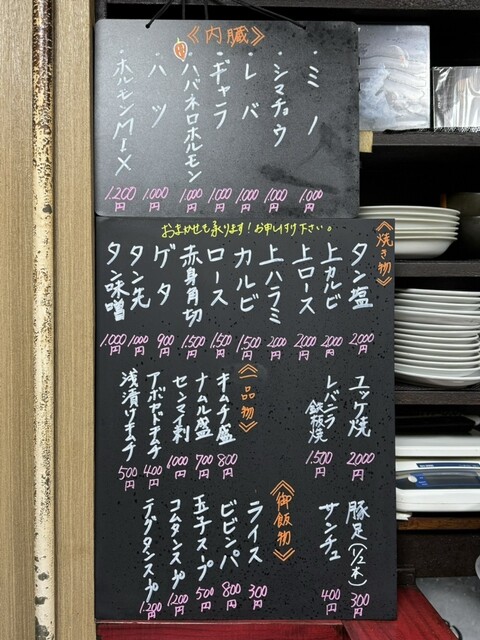 《内臓》
・ミノ 1,000円
・シマチョウ 1,000円
・レバ 1,000円
・ギャラ 1,000円
・ハバネロホルモン 1,000円
・ハツ 1,000円
・ホルモンMIX 1,200円
おまかせも承ります！お申し付け下さい。
《焼き物》
タン塩 2,000円
上カルビ 2,000円
上ロース 2,000円
上ハラミ 2,000円
カルビ 1,500円
ロース 1,500円
赤身角切 1,500円
ゲタ 900円
タン先 1,000円
タン味噌 1,000円
ユッケ焼 2,000円
レバニラ鉄板焼 1,500円
豚足(1/2本) 300円
サンチュ 400円
《一品物》
キムチ盛 800円
ナムル盛 700円
センマイ刺 1,000円
アボセットキムチ 400円
浅漬けキムチ 500円
《御飯物》
ライス 300円
ビビンパ 800円
玉子スープ 500円
コムタンスープ 1,200円
テグタンスープ 1,200円